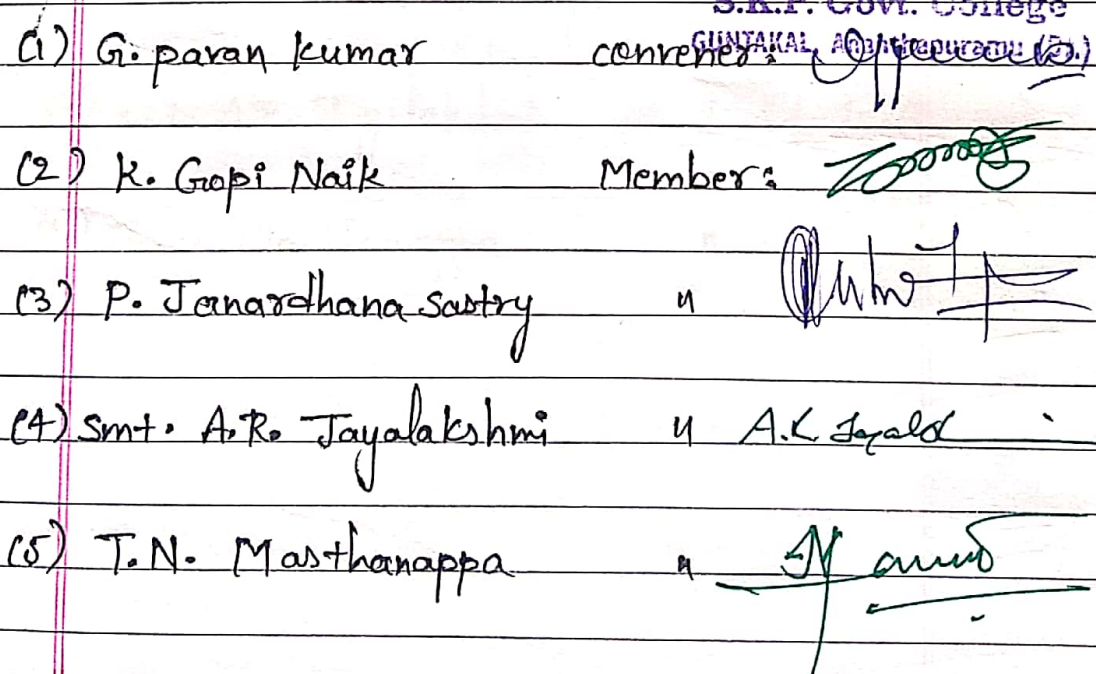 S.K.P. Govt. College
GUNTAKAL, Ananthapuramu (D.)
(1) G. pavan kumar convener:
(2) K. Gopi Naik Member:
(3) P. Janardhana Sastry "
(4) Smt. A.R. Jayalakshmi " A.R. Jayalak
(5) T.N. Masthanappa "